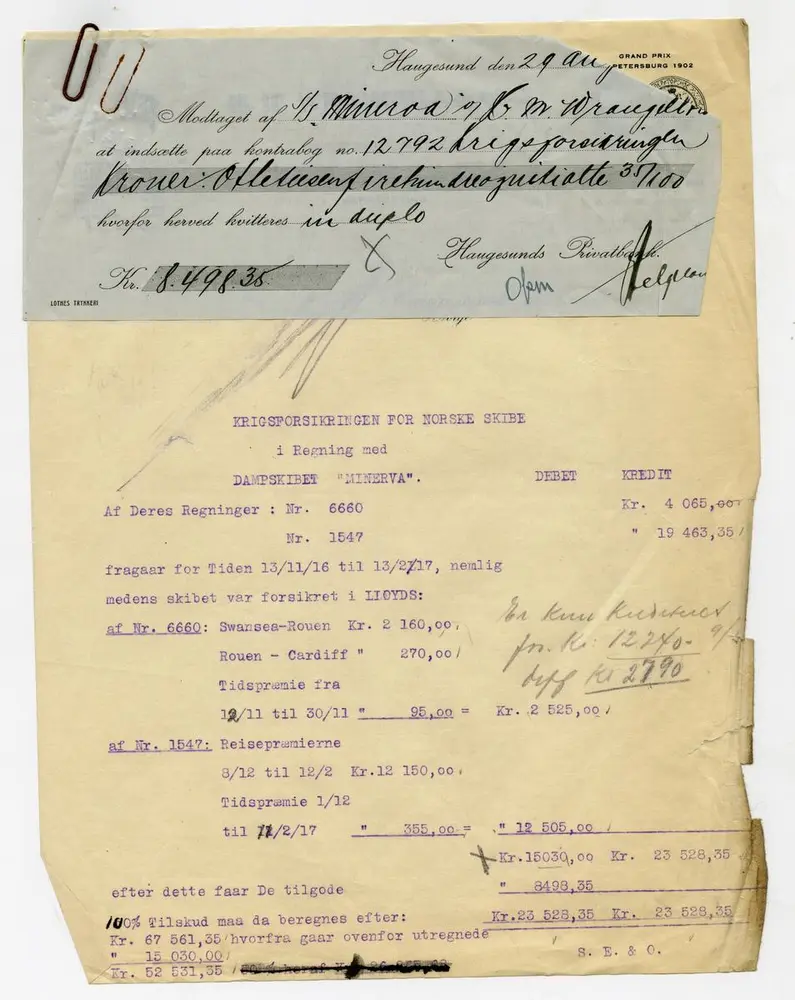 GRAND PRIX
PETERSBURG 1902
Haugesund den 29 Aug
Modtaget af S/S. Minerva og Kr. M. Wrangell
at indsætte paa kontrabog no. 12792 Krigsforsikringen
Kroner: Ottetusenfirehundreognittiotte 35/100
hvorfor herved kvitteres in duplo
Haugesunds Privatbank.
Kr. 8.498.35
LOTHES TRYKKERI
KRIGSFORSIKRINGEN FOR NORSKE SKIBE
i Regning med
DAMPSKIBET "MINERVA". DEBET KREDIT
Af Deres Regninger : Nr. 6660 Kr. 4 065,00
Nr. 1547 " 19 463,35
fragaar for Tiden 13/11/16 til 13/2/17, nemlig
medens skibet var forsikret i LLOYDS:
af Nr. 6660: Swansea-Rouen Kr. 2 160,00
Rouen - Cardiff " 270,00
Er kun krediteret
for Kr. 12240.- 9/
diff Kr 2790
Tidspræmie fra
12/11 til 30/11 " 95,00 = Kr. 2 525,00
af Nr. 1547: Reisepræmierne
8/12 til 12/2 Kr.12 150,00
Tidspræmie 1/12
til 11/2/17 " 355,00 = " 12 505,00
Kr.15030,00 Kr. 23 528,35
efter dette faar De tilgode " 8498,35
Kr.23 528,35 Kr. 23 528,35
100% Tilskud maa da beregnes efter:
Kr. 67 561,35 hvorfra gaar ovenfor utregnede
" 15 030,00
Kr. 52 531,35
S. E. & O.